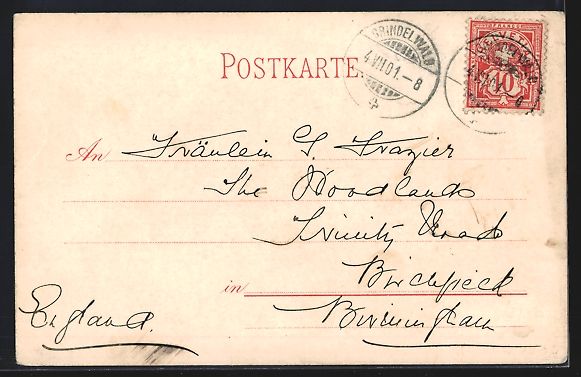 POSTKARTE.
GRINDELWALD
4.VII.01.-8
FRANCO
HELVETIA
10
An Fräulein G. Frazier
The Woodlands
Trinity Road
in Birchfield
Birmingham
England.